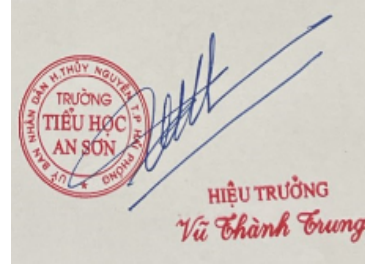 ỦY BAN NHÂN DÂN H.THỦY NGUYÊN T.P HẢI PHÒNG
TRƯỜNG
TIỂU HỌC
AN SƠN
HIỆU TRƯỞNG
Vũ Thành Trung